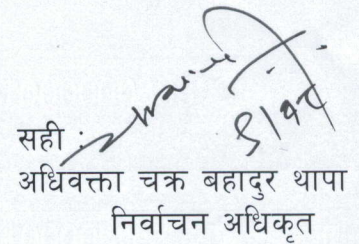 सही :
अधिवक्ता चक्र बहादुर थापा
निर्वाचन अधिकृत